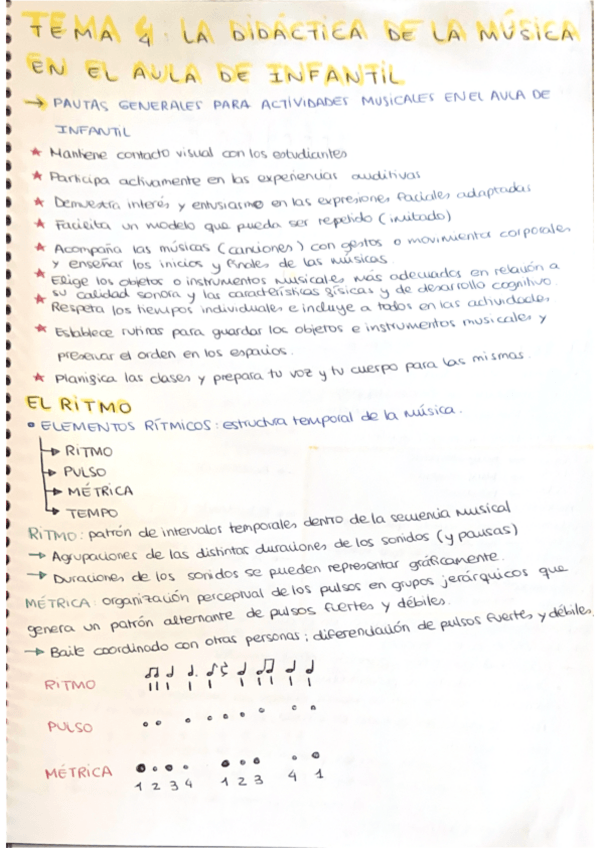 TEMA 4: LA DIDÁCTICA DE LA MÚSICA
EN EL AULA DE INFANTIL
→ PAUTAS GENERALES PARA ACTIVIDADES MUSICALES EN EL AULA DE
INFANTIL
★ Mantiene contacto visual con los estudiantes
★ Participa activamente en las experiencias auditivas
★ Demuestra interés y entusiasmo en las expresiones faciales adaptadas
★ Facilita un modelo que pueda ser repetido (imitado)
★ Acompaña las músicas (canciones) con gestos o movimientos corporales
y enseñar los inicios y finales de las músicas.
★ Elige los objetos o instrumentos musicales más adecuados en relación a
su calidad sonora y las características físicas y de desarrollo cognitivo.
★ Respeta los tiempos individuales e incluye a todos en las actividades
★ Establece rutinas para guardar los objetos e instrumentos musicales y
preservar el orden en los espacios.
★ Planifica las clases y prepara tu voz y tu cuerpo para las mismas.
EL RITMO
• ELEMENTOS RÍTMICOS: estructura temporal de la música.
→ RITMO
→ PULSO
→ MÉTRICA
→ TEMPO
RITMO: patrón de intervalos temporales dentro de la secuencia musical
→ Agrupaciones de las distintas duraciones de los sonidos (y pausas)
→ Duraciones de los sonidos se pueden representar gráficamente.
MÉTRICA: organización perceptual de los pulsos en grupos jerárquicos que
genera un patrón alternante de pulsos fuertes y débiles.
→ Baile coordinado con otras personas; diferenciación de pulsos fuertes y débiles
RITMO
PULSO
MÉTRICA
1 2 3 4 1 2 3 4 1